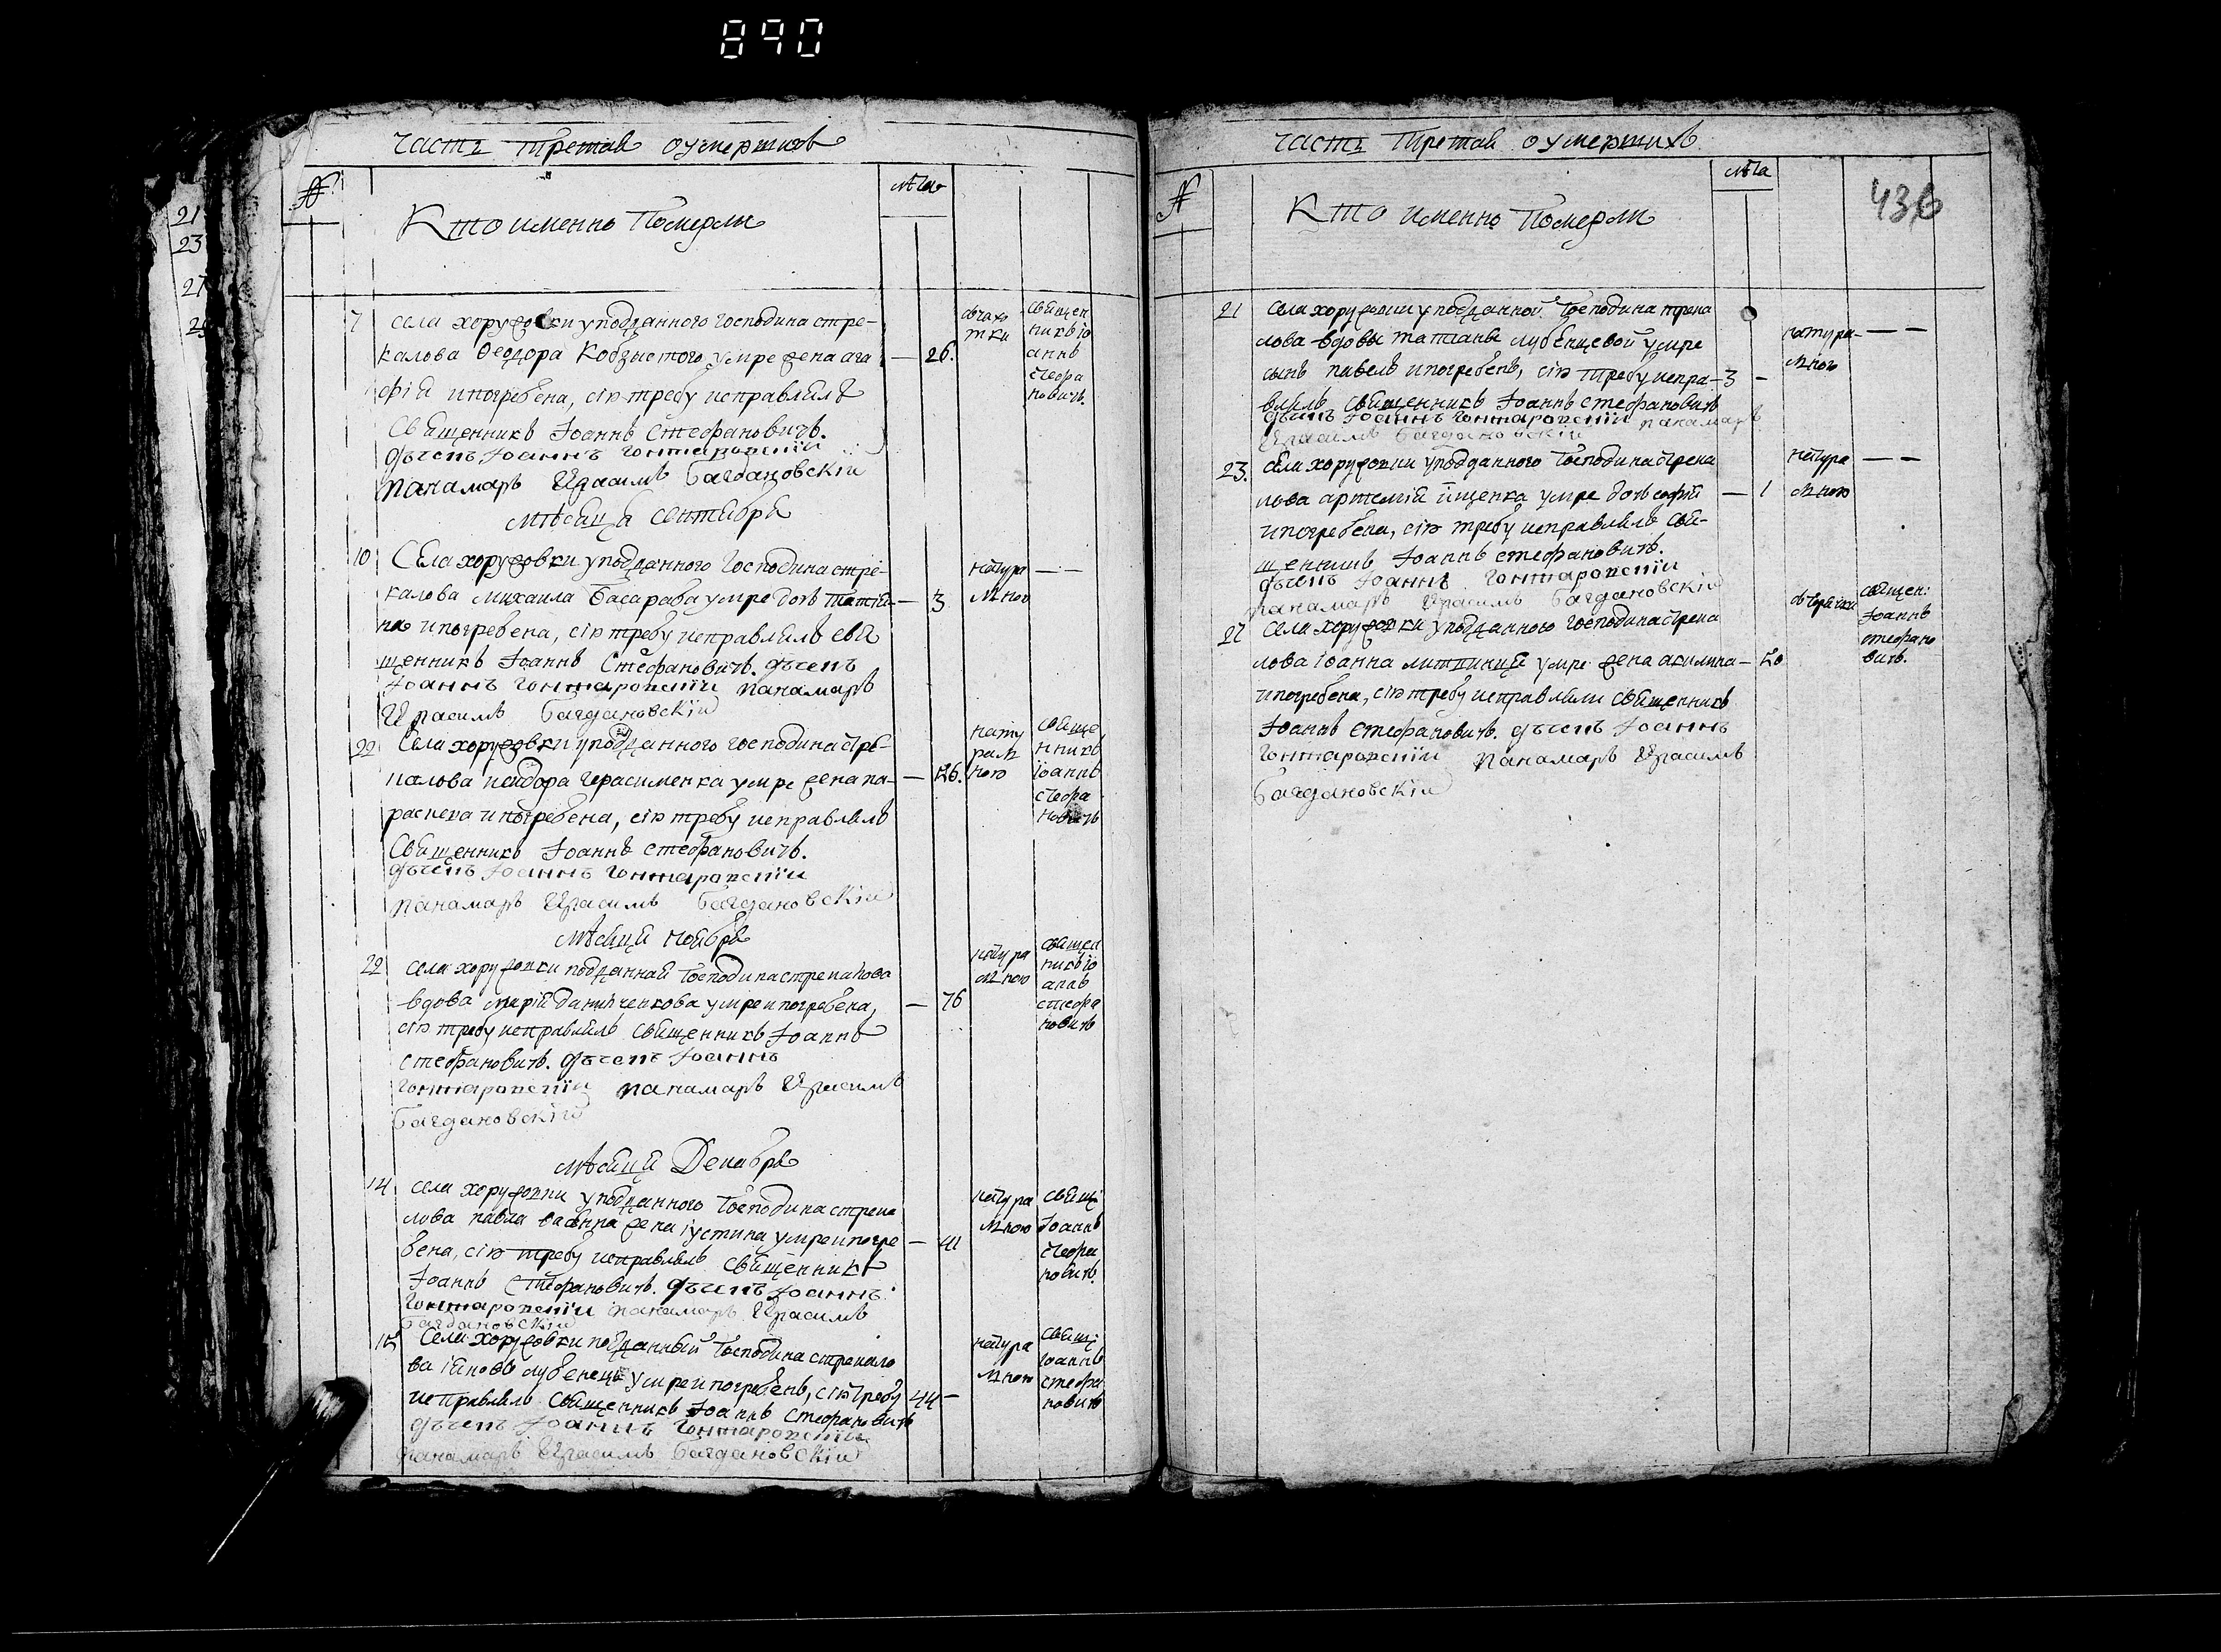 890
часть третая оумершихъ
№
лѣта
Кто именно Померли
21
23
27
29
7
села хоружовки уподданного господина стре-
калова Феодора Кобзистого умре жена ага
— 26.
фія ипогребена, сію требу исправлялъ
Священникъ Іоаннъ Стефановичъ.
дьячекъ Іоаннъ Гонтаровскій
панамарь Ирасимъ Багдановскій
отъ сухо
тки
священ
никъ Іо
аннъ
стефа
новичъ.
Мѣсяца Сентября
10
Села хоружовки уподданного Господина стре-
калова михаила Басараба умре дочь татія-
— 3
на ипогребена, сію требу исправлялъ свя
щенникъ Іоаннъ Стефановичъ. дьячекъ
Іоаннъ Гонтаровскій панамарь
Ирасимъ Багдановскій
натура
лною
— —
22
Села хоружовки уподданного господина стре-
калова исидора Герасименка умре жена па-
— 26.
раскева ипогребена, сію требу исправлялъ
Священникъ Іоаннъ Стефановичъ.
дьячекъ Іоаннъ Гонтаровскій
панамарь Ирасимъ Багдановскій
нату
рал
ною
свяще
нникъ
Іоаннъ
стефа
новичъ
Мѣсяца Ноября
22
села хоружовки подданная Господина стрекалова
вдова марія данилченкова умре ипогребена,
— 76
сію требу исправлялъ священникъ Іоаннъ
стефановичъ. дьячекъ Іоаннъ
Гонтаровскій панамарь Ирасимъ
Багдановскій
натура
лною
священ
никъ Іо
аннъ
стефа
новичъ
Мѣсяца Декабря
14
села хоружовки уподданного Господина стрека
лова павла жена іустина умре ипогре
— 41
бена, сію требу исправлялъ священникъ
Іоаннъ Стефановичъ. дьячекъ Іоаннъ
Гонтаровскій панамарь Ирасимъ
Багдановскій
натура
лною
свящ:
Іоаннъ
стефа
новичъ.
Села хоружовки подданный Господина стрекало
ва іяковъ лубенецъ умре ипогребенъ, сію требу
44 —
исправлялъ священникъ Іоаннъ Стефановичъ
дьячекъ Іоаннъ Гонтаровскій
панамарь Ирасимъ Багдановскій
натура
лною
свящ:
Іоаннъ
стефа
новичъ
часть третая оумершихъ
№
лѣта
436
Кто именно Померли
21
Села хоружовки уподданной Господина стрека
лова вдовы татіаны лубенцевой умре
сынъ павелъ ипогребенъ, сію требу испра-
3 —
влялъ священникъ Іоаннъ стефановичъ
дьячекъ Іоаннъ Гонтаровскій панамарь
Ирасимъ Багдановскій
натура-
лною
— —
23.
села хоружовки уподданного Господина стрека
лова артемія умре дочь софія
— 1
ипогребена, сію требу исправлялъ свя-
щенникъ Іоаннъ стефановичъ.
дьячекъ Іоаннъ Гонтаровскій
панамарь Ирасимъ Багдановскій
натура
лною
— —
27
Села хоружовки уподданного Господина стрека
лова іоанна умре жена акилина
—
ипогребена, сію требу исправляли священникъ
Іоаннъ Стефановичъ. дьячекъ Іоаннъ
Гонтаровскій панамарь Ирасимъ
Багдановскій
отъ горячки
священ:
Іоаннъ
стефано
вичъ.